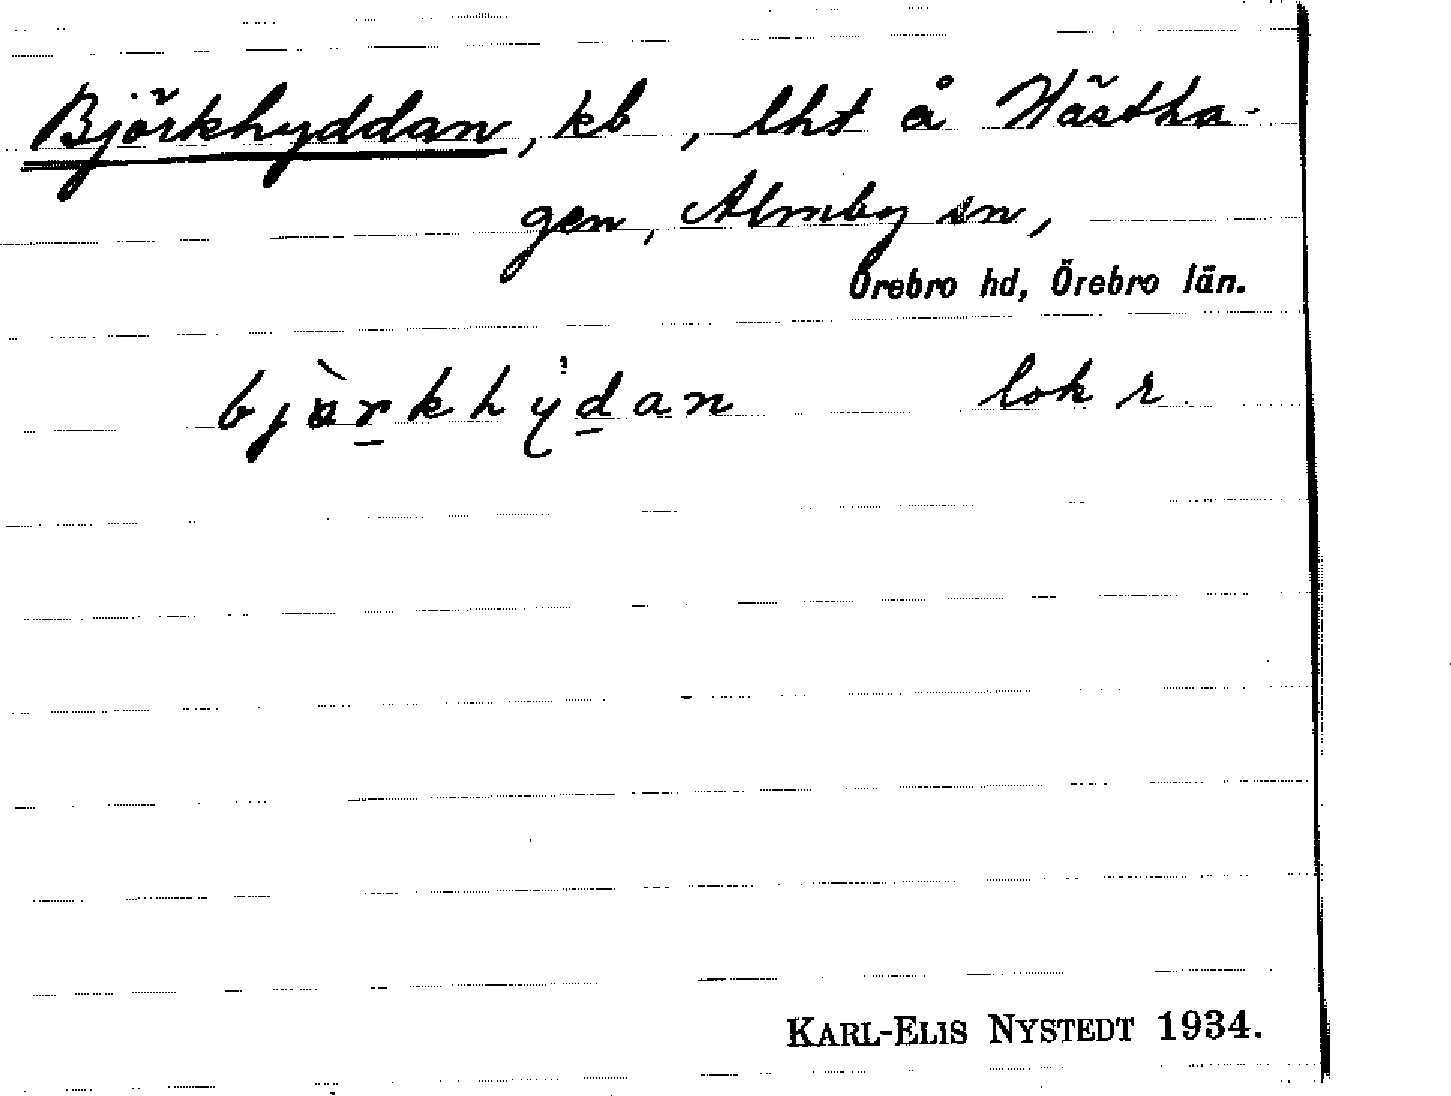 Björkhyddan, kb, lht å Hästha-
gen, Almby sn,
Örebro hd, Örebro län.
bjàrkhy̍dan lok r.
KARL-ELIS NYSTEDT 1934.